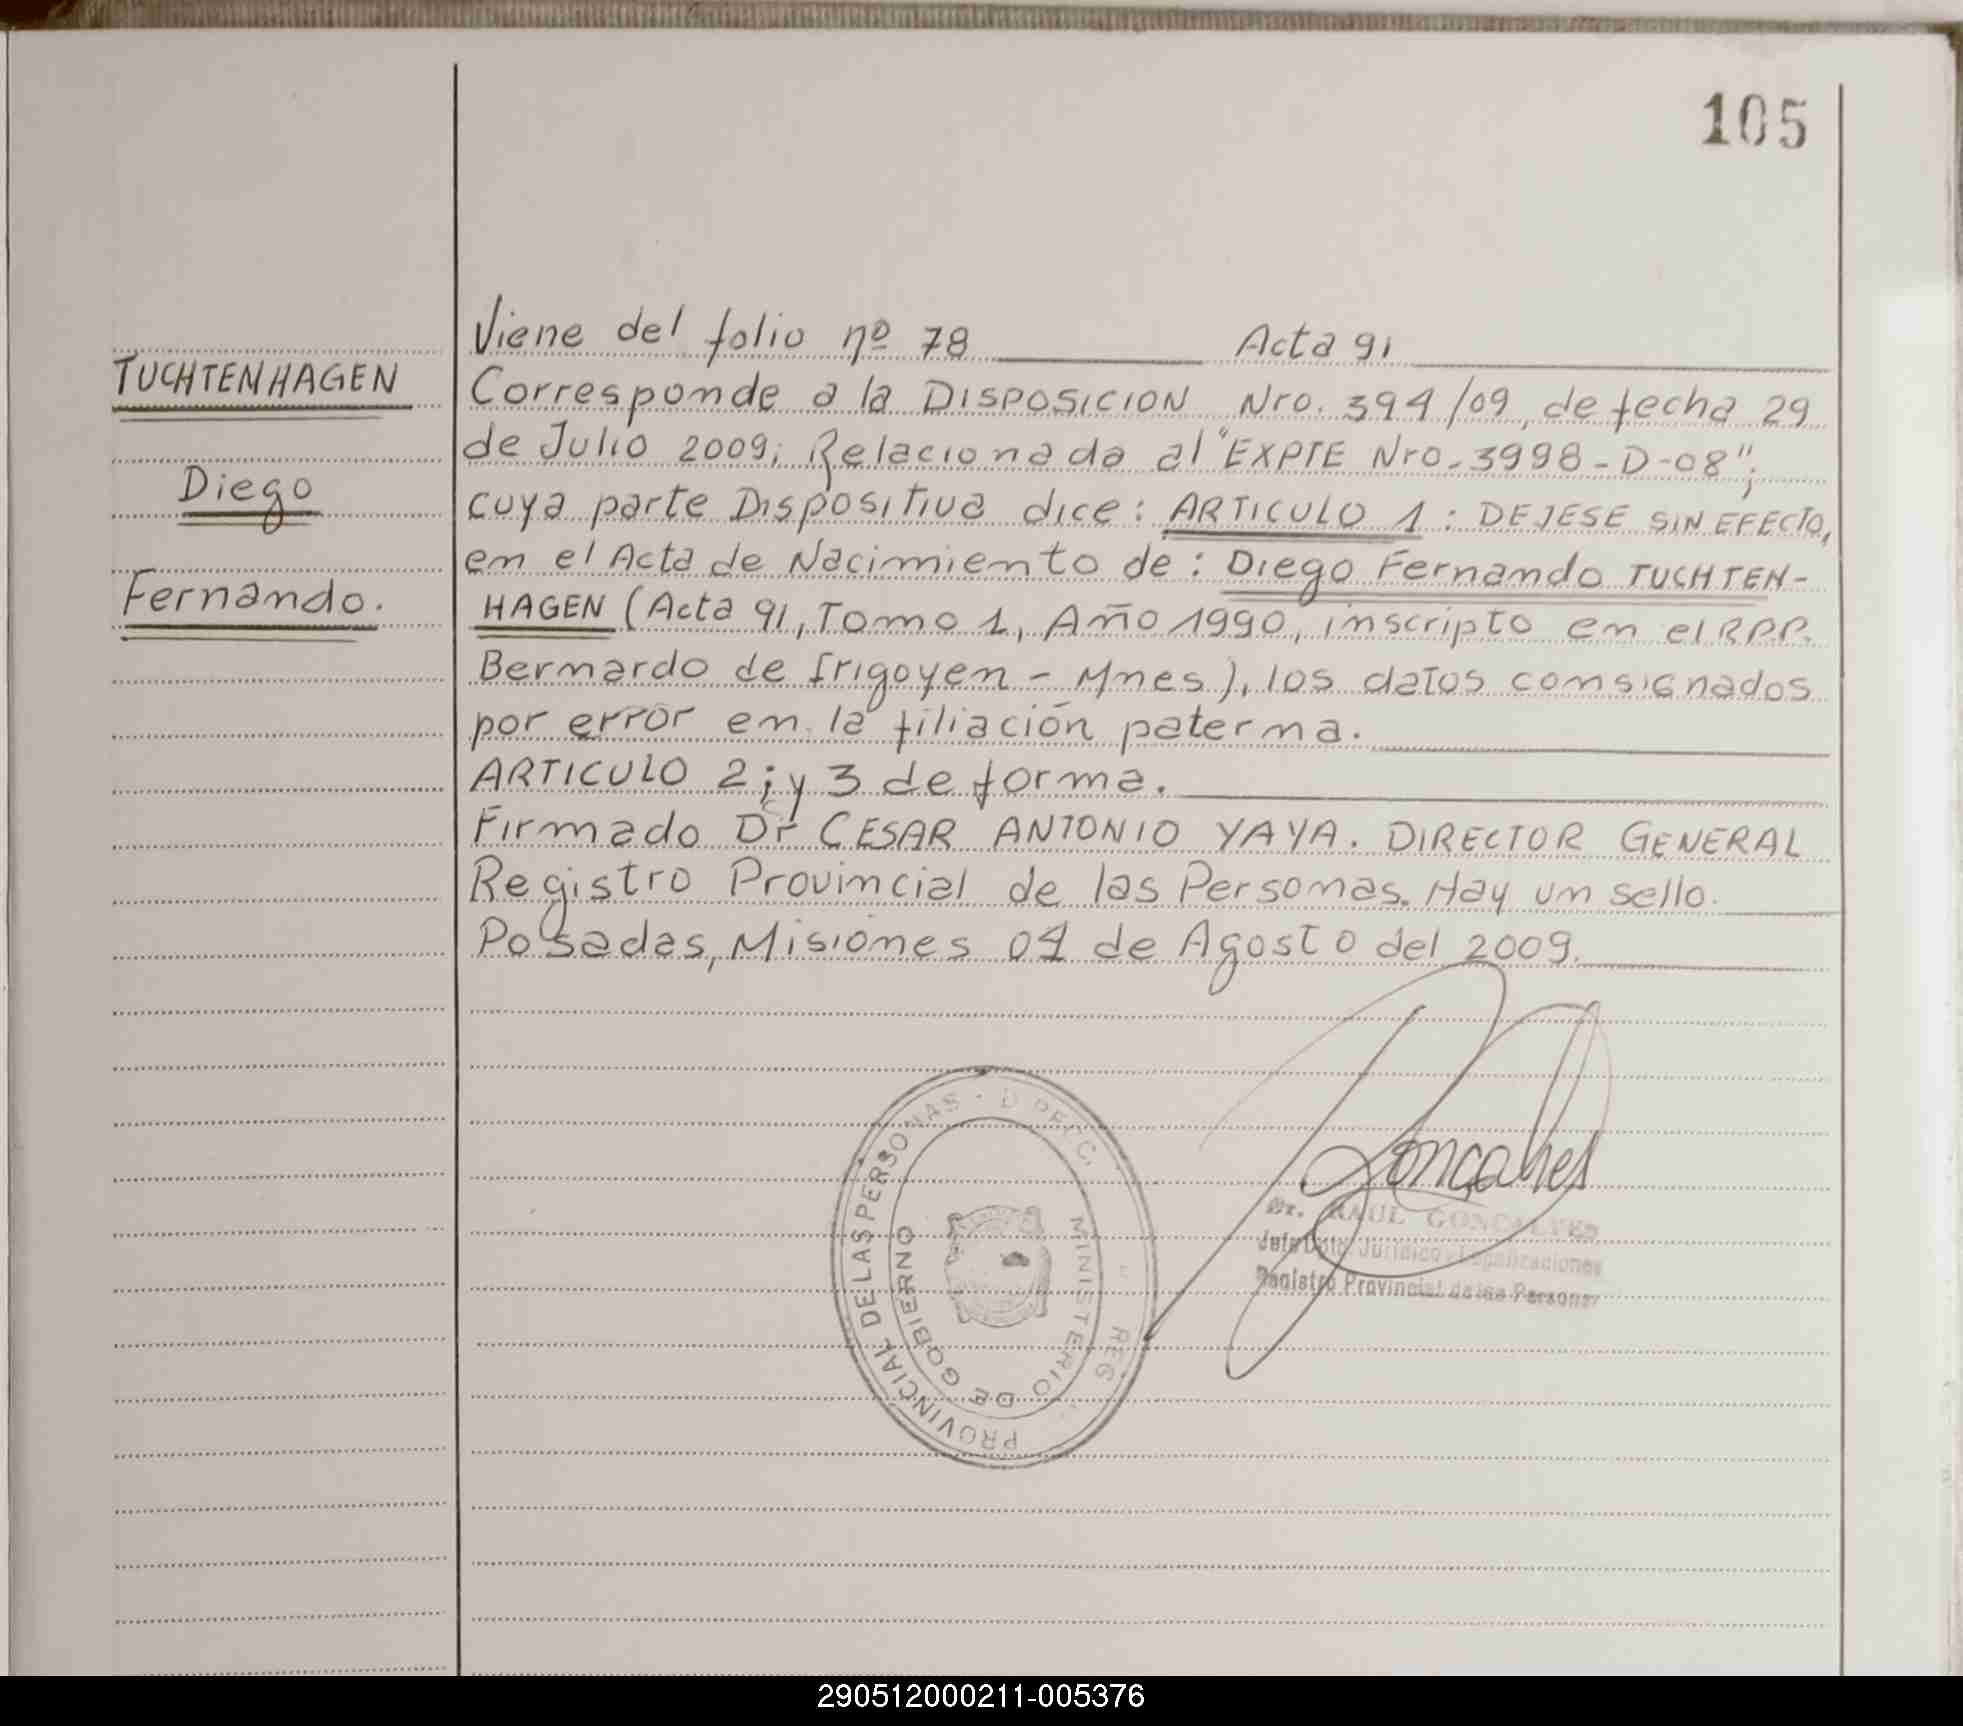 105
Viene del folio nº 78 Acta 91
TUCHTENHAGEN
Diego
Fernando.
Corresponde a la DISPOSICION Nro. 394/09, de fecha 29
de Julio 2009; Relacionada al "EXPTE Nro. 3998-D-08";
cuya parte Dispositiva dice: ARTICULO 1: DEJESE SIN EFECTO,
en el Acta de Nacimiento de: Diego Fernando TUCHTEN-
HAGEN (Acta 91, Tomo 1, Año 1990, inscripto en el R.P.P.
Bernardo de Irigoyen - Mnes), los datos consignados
por error en la filiación paterna.
ARTICULO 2; y 3 de forma.
Firmado Dr CESAR ANTONIO YAYA. DIRECTOR GENERAL
Registro Provincial de las Personas. Hay un sello.
Posadas, Misiones 04 de Agosto del 2009.
REG. PROVINCIAL DE LAS PERSONAS - DIRECC.
MINISTERIO DE GOBIERNO
Gonçalves
Dr. RAUL GONCALVES
Jefe Dpto. Jurídico - Legalizaciones
Registro Provincial de las Personas
290512000211-005376